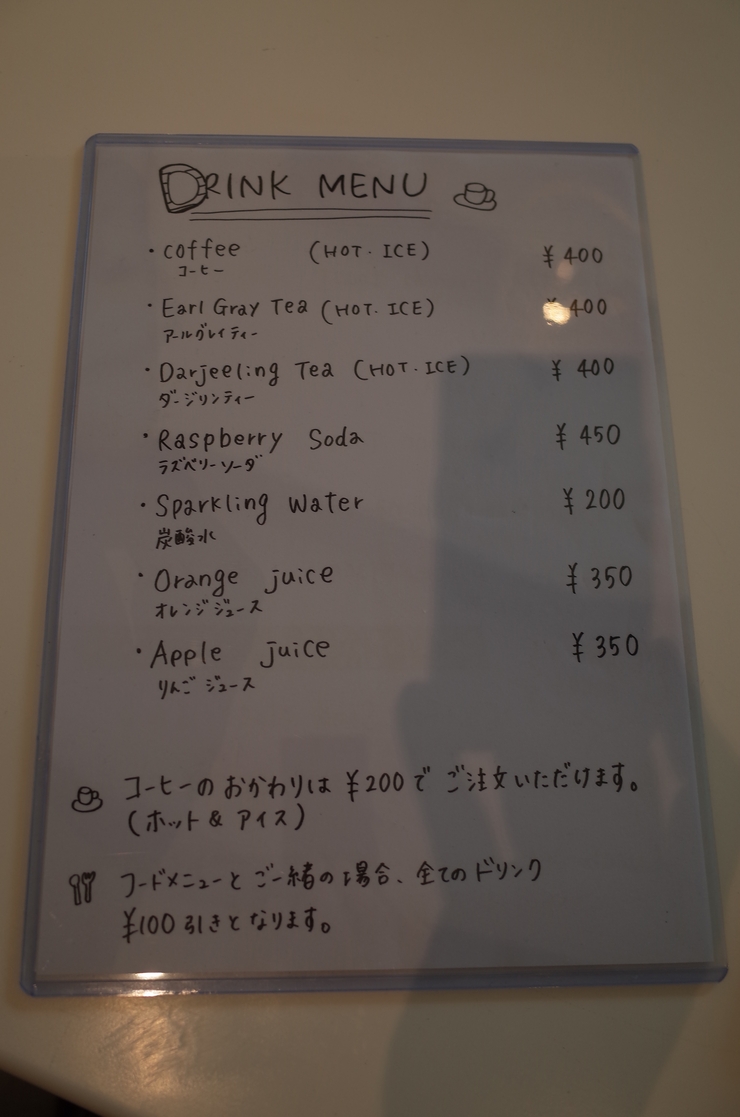 DRINK MENU
・coffee (HOT・ICE) ¥400
コーヒー
・Earl Gray Tea (HOT・ICE) ¥400
アールグレイティー
・Darjeeling Tea (HOT・ICE) ¥400
ダージリンティー
・Raspberry Soda ¥450
ラズベリーソーダ
・Sparkling Water ¥200
炭酸水
・Orange juice ¥350
オレンジジュース
・Apple juice ¥350
りんごジュース
コーヒーのおかわりは¥200でご注文いただけます。
(ホット&アイス)
フードメニューとご一緒の場合、全てのドリンク
¥100引きとなります。